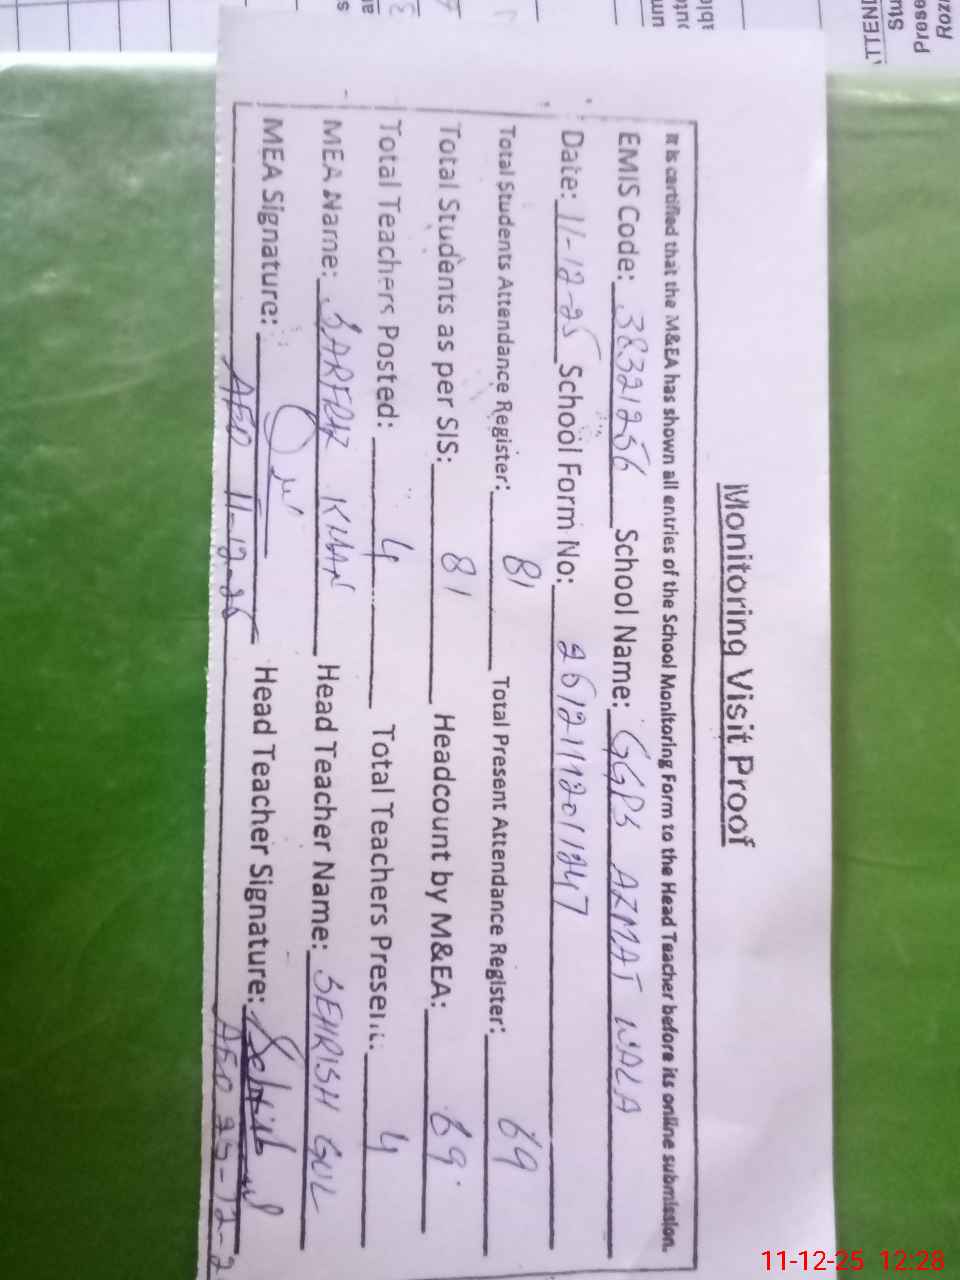 Monitoring Visit Proof
It is certified that the M&EA has shown all entries of the School Monitoring Form to the Head Teacher before its online submission.
EMIS Code: 38321256 School Name: GGPS AZMAT WALA
Date: 11-12-25 School Form No: 2512111201247
Total Students Attendance Register: 81 Total Present Attendance Register: 69
Total Students as per SIS: 81 Headcount by M&EA: 69
Total Teachers Posted: 4 Total Teachers Present: 4
MEA Name: SARFRAZ KHAN Head Teacher Name: SEHRISH GUL
MEA Signature: Head Teacher Signature: Sehrish Gul
AEO 11-12-25 AEO
11-12-25 12:28